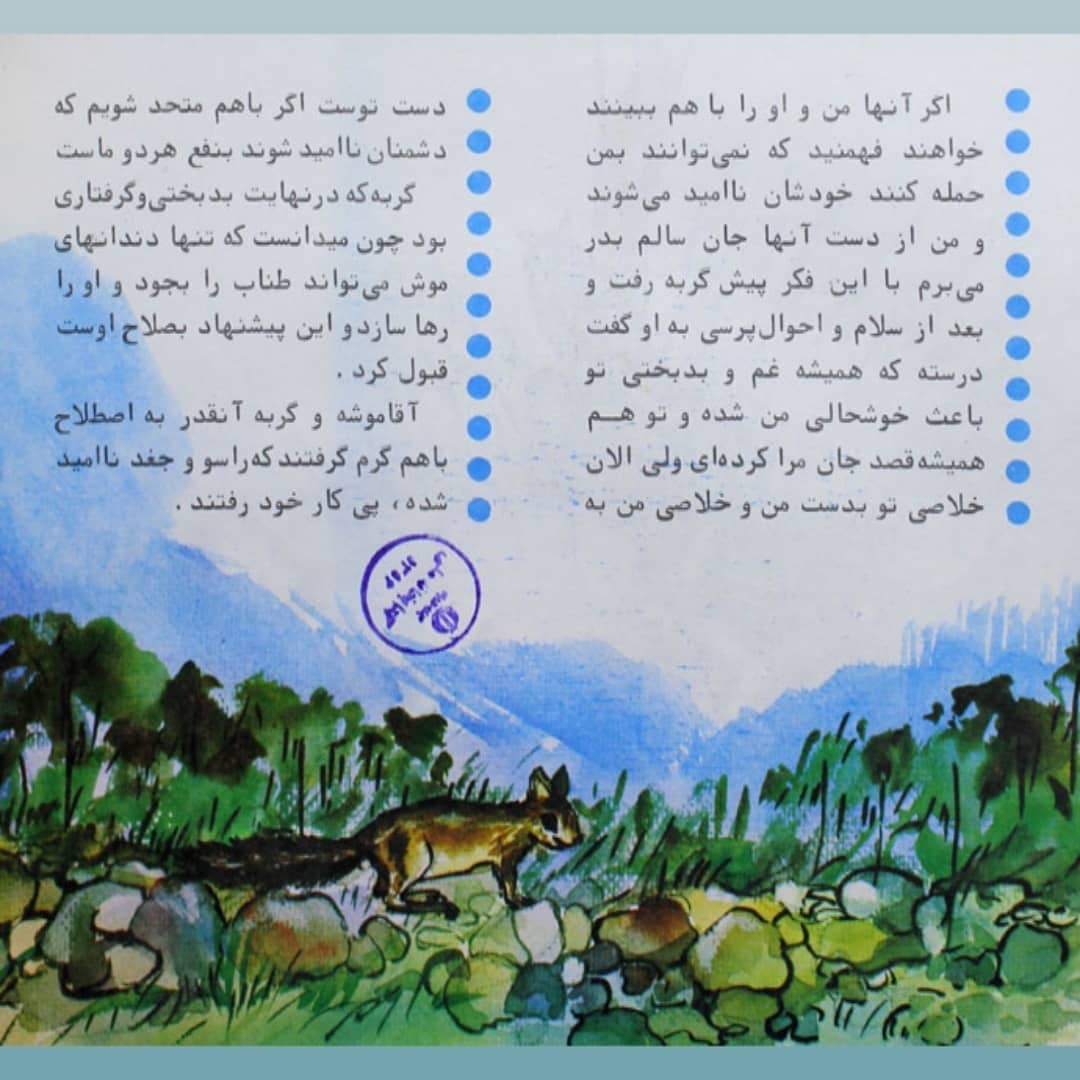 اگر آنها من و او را با هم ببینند
خواهند فهمنید که نمی‌توانند بمن
حمله کنند خودشان ناامید می‌شوند
و من از دست آنها جان سالم بدر
می‌برم با این فکر پیش گربه رفت و
بعد از سلام و احوال‌پرسی به او گفت
درسته که همیشه غم و بدبختی تو
باعث خوشحالی من شده و تو هم
همیشه قصد جان مرا کرده‌ای ولی الان
خلاصی تو بدست من و خلاصی من به
دست توست اگر باهم متحد شویم که
دشمنان ناامید شوند بنفع هردو ماست
گربه که درنهایت بدبختی و گرفتاری
بود چون میدانست که تنها دندانهای
موش می‌تواند طناب را بجود و او را
رها سازد و این پیشنهاد بصلاح اوست
قبول کرد .
آقاموشه و گربه آنقدر به اصطلاح
باهم گرم گرفتند که راسو و جغد ناامید
شده، پی کار خود رفتند .